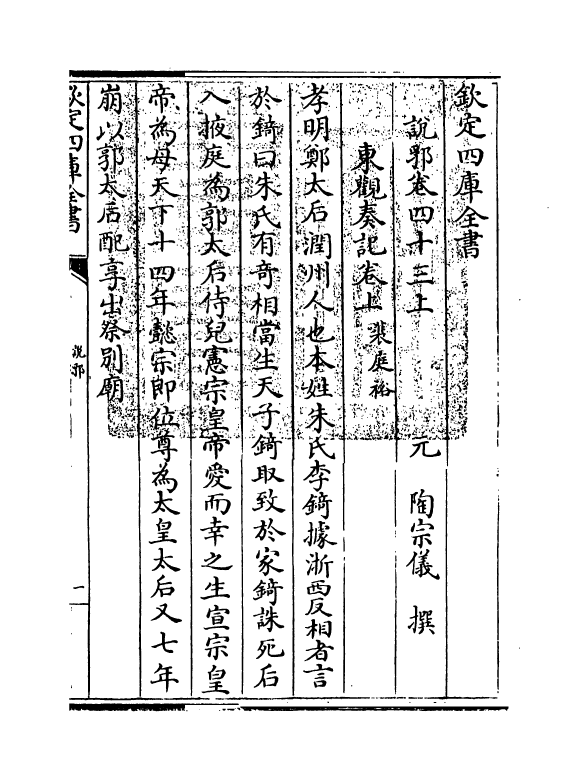 欽定四庫全書
說郛卷四十三上
元　陶宗儀　撰
東觀奏記卷上　裴庭裕
孝明鄭太后潤州人也本姓朱氏李錡據浙西反相者言
於錡曰朱氏有奇相當生天子錡取致於家錡誅死后
入掖庭為郭太后侍兒憲宗皇帝愛而幸之生宣宗皇
帝為母天下十四年懿宗即位尊為太皇太后又七年
崩以郭太后配享出祭別廟
欽定四庫全書
說郛
一